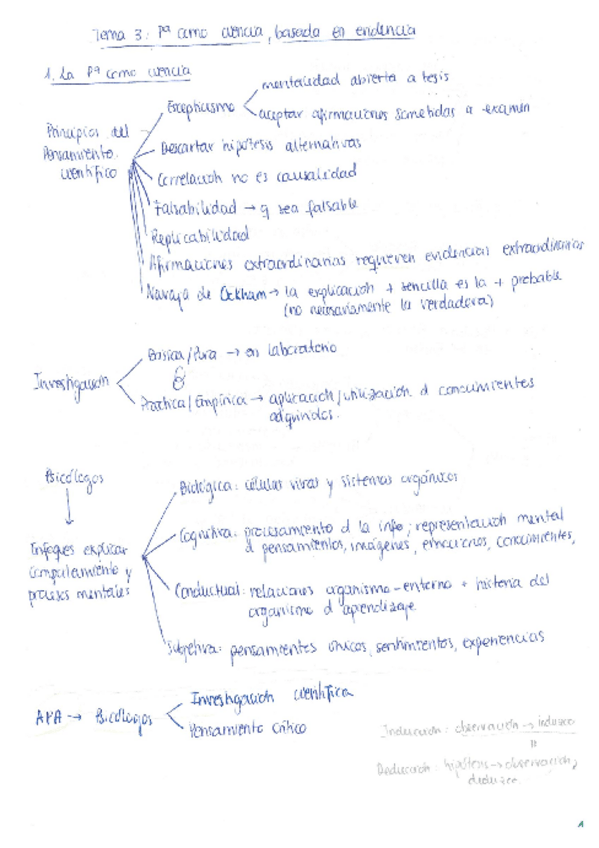 Tema 3: Pª como ciencia, basada en evidencia
1. La Pª como ciencia
Principios del
Pensamiento
científico
Escepticismo
mentalidad abierta a tesis
aceptar afirmaciones sometidas a examen
Descartar hipótesis alternativas
Correlación no es causalidad
Falsabilidad → q sea falsable
Replicabilidad
Afirmaciones extraordinarias requieren evidencias extraordinarias
Navaja de Ockham → la explicación + sencilla es la + probable
(no necesariamente la verdadera)
Investigación
Básica/Pura → en laboratorio
Práctica/Empírica → aplicación/utilización d conocimientos
adquiridos.
Psicólogos
Enfoques explicar
comportamiento y
procesos mentales
Biológica: células vivas y sistemas orgánicos
Cognitiva: procesamiento d la info; representación mental
d pensamientos, imágenes, emociones, conocimientos,
Conductual: relaciones organismo-entorno + historia del
organismo d aprendizaje.
Subjetiva: pensamientos únicos, sentimientos, experiencias
APA → Psicólogos
Investigación científica
Pensamiento crítico
Inducción: observación → induzco
Deducción: hipótesis → observación,
deduzco.
A